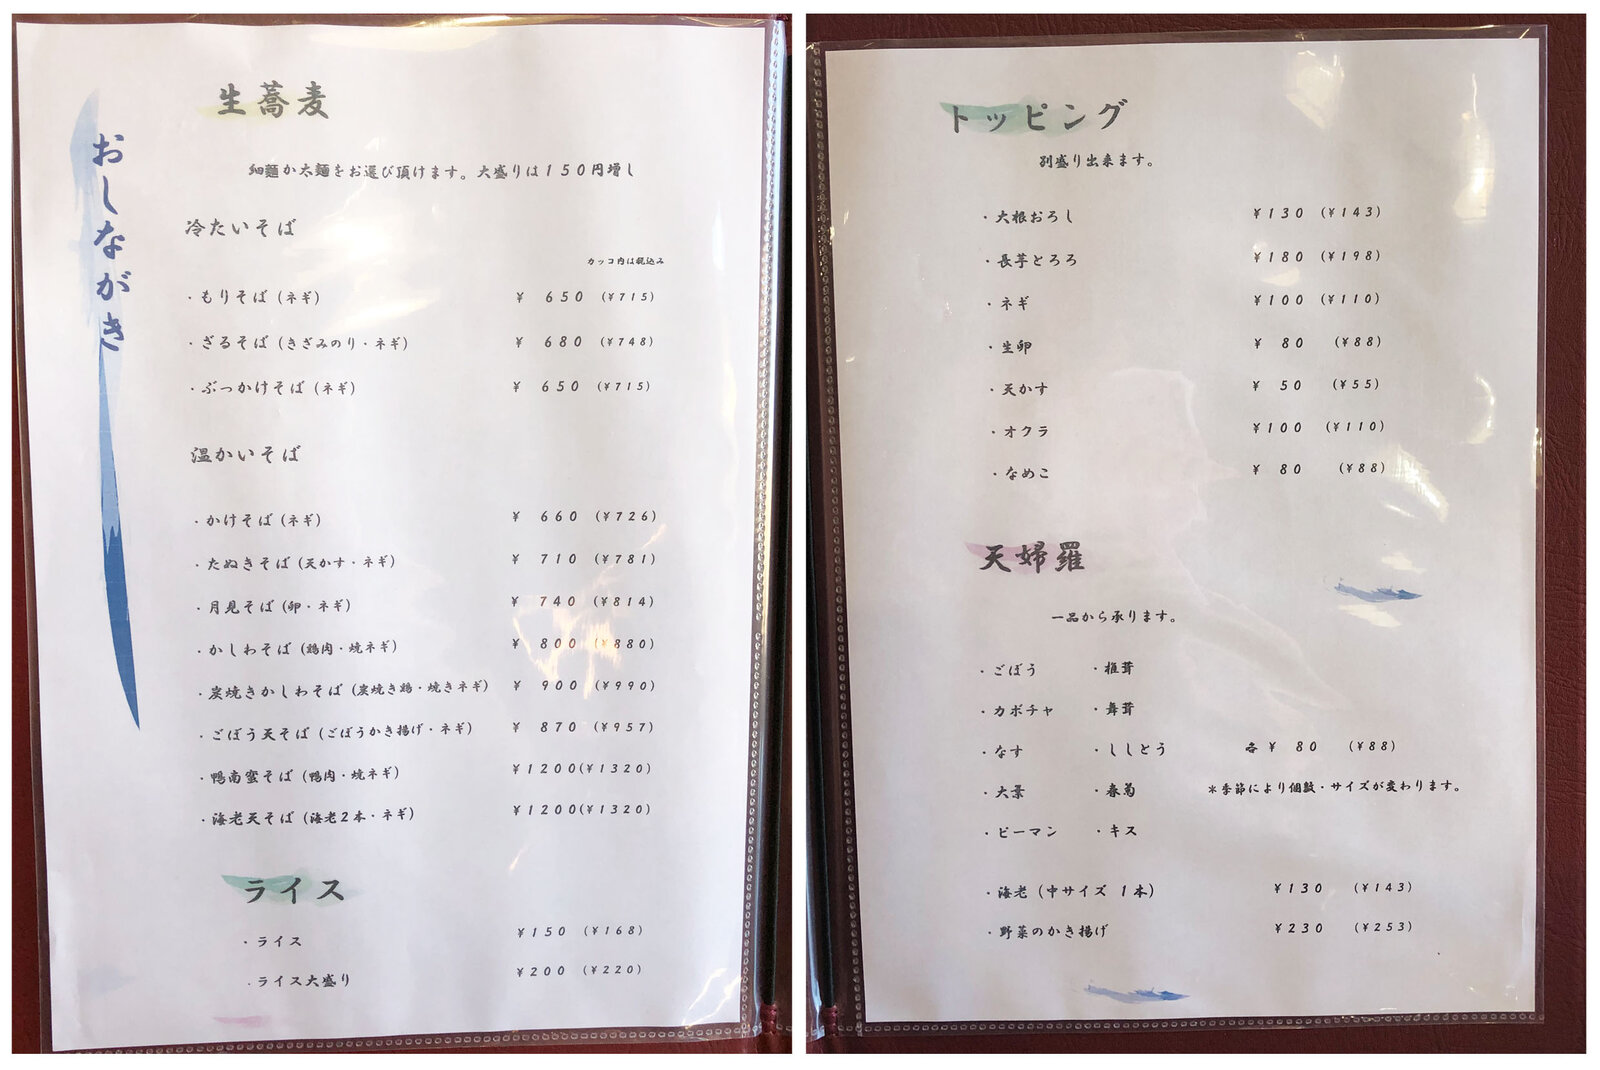 おしながき
生蕎麦
細麺か太麺をお選び頂けます。大盛りは150円増し
冷たいそば
カッコ内は税込み
・もりそば（ネギ） ¥ 650 (¥715)
・ざるそば（きざみのり・ネギ） ¥ 680 (¥748)
・ぶっかけそば（ネギ） ¥ 650 (¥715)
温かいそば
・かけそば（ネギ） ¥ 660 (¥726)
・たぬきそば（天かす・ネギ） ¥ 710 (¥781)
・月見そば（卵・ネギ） ¥ 740 (¥814)
・かしわそば（鶏肉・焼ネギ） ¥ 800 (¥880)
・炭焼きかしわそば（炭焼き鶏・焼きネギ） ¥ 900 (¥990)
・ごぼう天そば（ごぼうかき揚げ・ネギ） ¥ 870 (¥957)
・鴨南蛮そば（鴨肉・焼ネギ） ¥1200(¥1320)
・海老天そば（海老2本・ネギ） ¥1200(¥1320)
ライス
・ライス ¥150 (¥168)
・ライス大盛り ¥200 (¥220)
トッピング
別盛り出来ます。
・大根おろし ¥130 (¥143)
・長芋とろろ ¥180 (¥198)
・ネギ ¥100 (¥110)
・生卵 ¥ 80 (¥88)
・天かす ¥ 50 (¥55)
・オクラ ¥100 (¥110)
・なめこ ¥ 80 (¥88)
天婦羅
一品から承ります。
・ごぼう ・椎茸
・カボチャ ・舞茸
・なす ・ししとう 各¥ 80 (¥88)
・大葉 ・春菊 ＊季節により個数・サイズが変わります。
・ピーマン ・キス
・海老（中サイズ 1本） ¥130 (¥143)
・野菜のかき揚げ ¥230 (¥253)